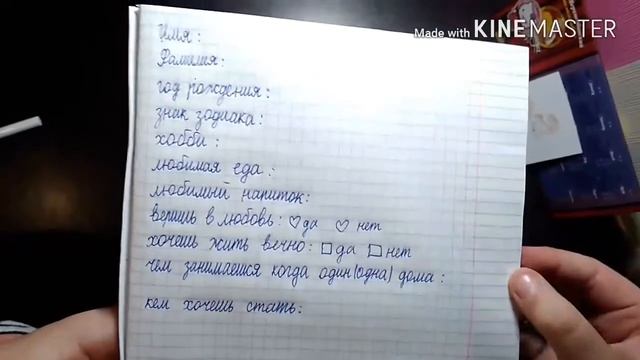 Made with KINEMASTER
Имя :
Фамилия :
год рождения :
знак зодиака :
хобби :
любимая еда :
любимый напиток:
веришь в любовь : ♡ да ♡ нет
хочешь жить вечно : □ да □ нет
чем занимаешся когда один(одна) дома :
кем хочешь стать: